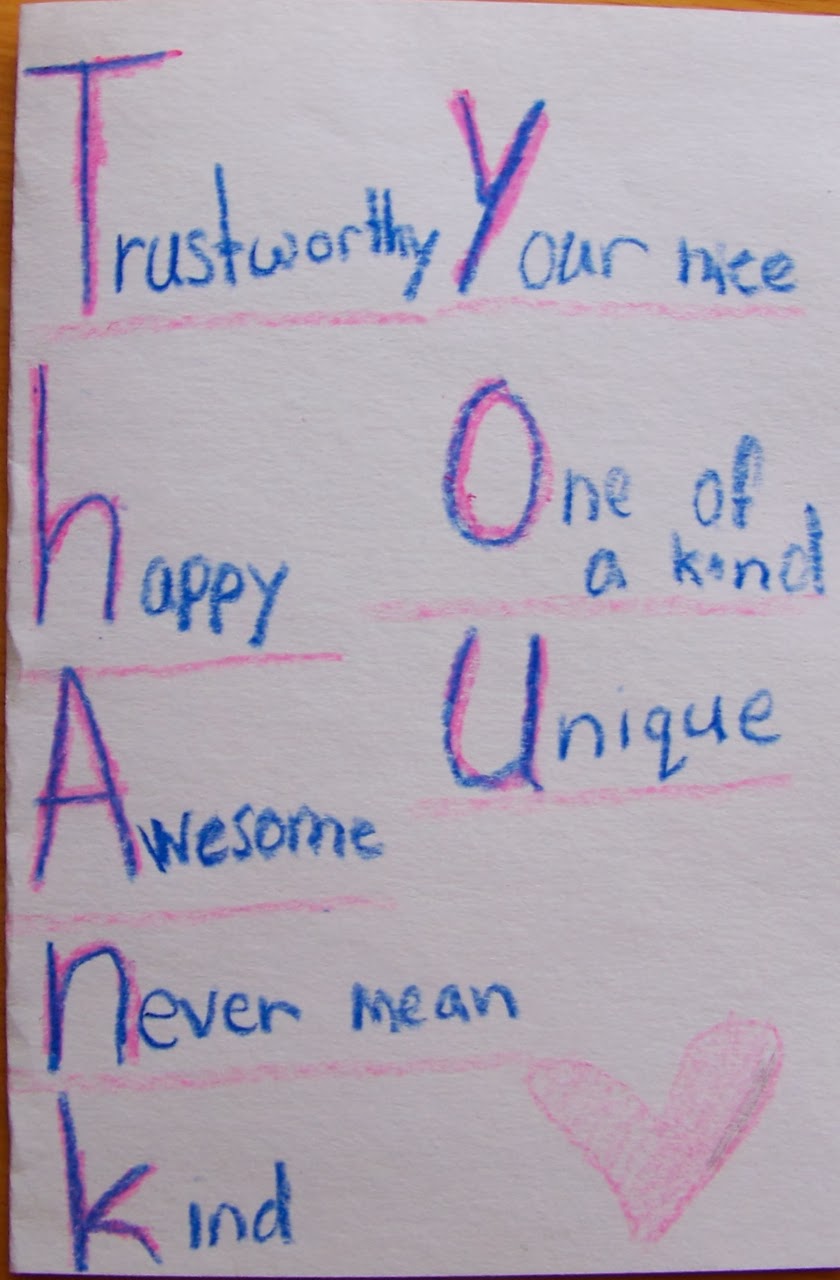 Trustworthy
happy
Awesome
never mean
kind
Your nice
One of
a kind
Unique